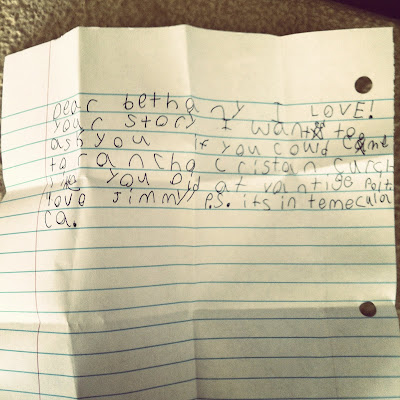 Dear bethany I LOVE!
your story I want to
ask you if you could
to rancha cristan curch
like you Did at vantige Poitt
love Jimmy P.S. its in temecula
ca.